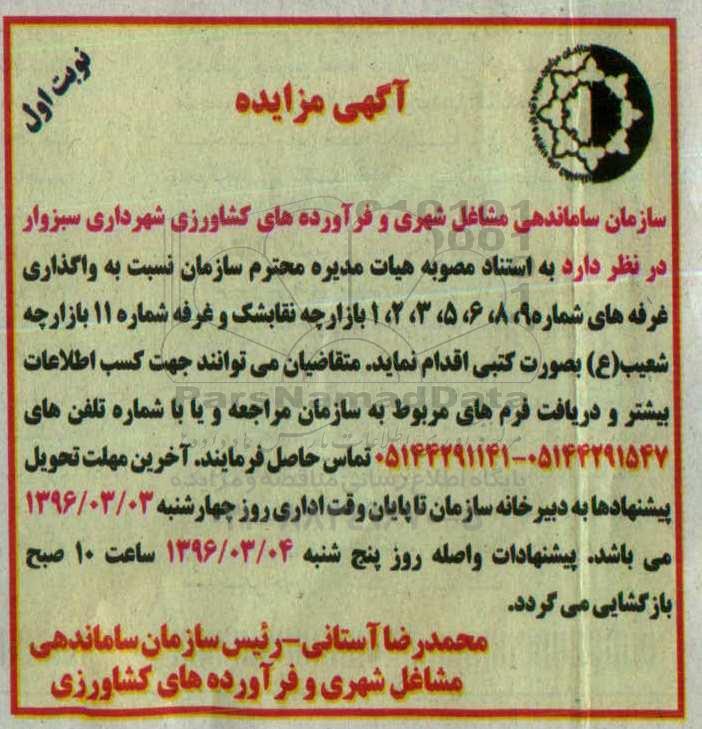 نوبت اول
آگهی مزایده
سازمان ساماندهی مشاغل شهری و فرآورده های کشاورزی شهرداری سبزوار
در نظر دارد به استناد مصوبه هیات مدیره محترم سازمان نسبت به واگذاری
غرفه های شماره۹، ۸، ۶، ۵، ۳، ۲، ۱ بازارچه نقابشک و غرفه شماره ۱۱ بازارچه
شعیب(ع) بصورت کتبی اقدام نماید. متقاضیان می توانند جهت کسب اطلاعات
بیشتر و دریافت فرم های مربوط به سازمان مراجعه و یا با شماره تلفن های
۰۵۱۴۴۲۹۱۵۴۷-۰۵۱۴۴۲۹۱۱۴۱ تماس حاصل فرمایند. آخرین مهلت تحویل
پیشنهادها به دبیرخانه سازمان تا پایان وقت اداری روز چهارشنبه ۱۳۹۶/۰۳/۰۳
می باشد. پیشنهادات واصله روز پنج شنبه ۱۳۹۶/۰۳/۰۴ ساعت ۱۰ صبح
بازگشایی می گردد.
محمدرضا آستانی-رئیس سازمان ساماندهی
مشاغل شهری و فرآورده های کشاورزی
ParsNamadData
پایگاه اطلاع رسانی مناقصه و مزایده